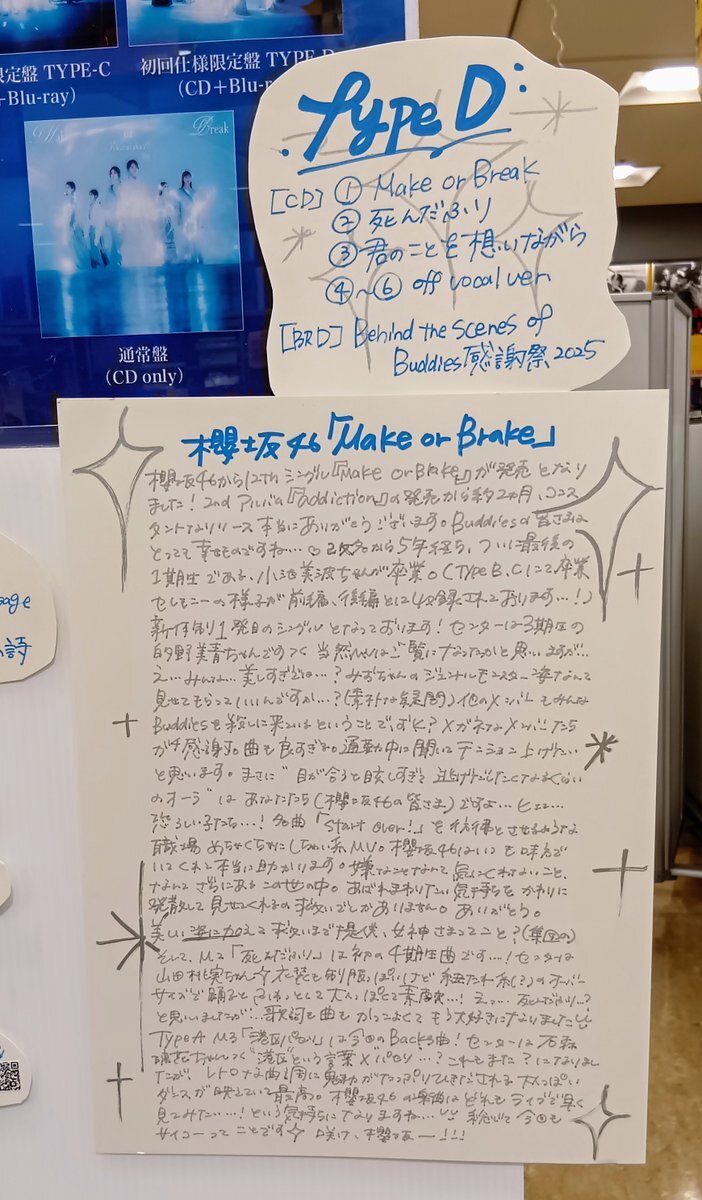 限定盤 TYPE-C
+Blu-ray)
初回仕様限定盤 TYPE-D
(CD+Blu-r
Break
通常盤
(CD only)
Type D
[CD] ① Make or Break
② 死んだふり
③ 君のことを想いながら
④~⑥ off vocal ver.
[BRD] Behind the scenes of
Buddies感謝祭2025
櫻坂46「Make or Brake」
櫻坂46から12thシングル『Make or Brake』が発売となり
ました！2ndアルバム『Addiction』の発売から約2ヵ月、コンス
タントなリリース本当にありがとうございます。Buddiesの皆さまは
とっても幸せものですね…♡改名から5年経ち、ついに最後の
1期生である、小池美波ちゃんが卒業。(TYPE B、Cにて卒業
セレモニーの様子が前編、後編と収録されております…！)
新体制1発目のシングルとなっております！センターは3期生の
的野美青ちゃんですって 当然MVはご覧になったかと思いますが…
え…みんな…美しすぎでは…？みおちゃんのジェネラルモンスター姿なんて
見せてもらっていいんですか…？(素朴な疑問)他のメンバーもみんな
Buddiesを殺しに来ているということですよね？メガネなメンバーたち
が感謝。曲も良すぎる。通勤中に聞いてテンション上げたい
と思います。まさに"目が合うと眩しすぎて逃げだしたくなるくらい
のオーラ"はあなたたち(櫻坂46の皆さま)ですよ…ヒェ…
恐ろしい子たち…！名曲「Start over!」を彷彿とさせるような
職場めちゃくちゃにしちゃい系MV。櫻坂46はいつも味方で
いてくれて本当に助かります。嫌なことなんて気にくれないこと、
なんてざらにあるこの世の中。あばれまわりたい気持ちをかわりに
発散して見せてくれるの救いでしかありません。ありがとう。
美しい姿に加えて救いまで提供、女神さまってこと？(集団の)
そして、M2「死んだふり」は初の4期生曲です…！センターは
山田桃実ちゃん☆衣装も制服っぽいけど紐たれ系(？)のオーバー
サイズで踊るとふわっとして大人っぽくて素敵…！えっ…死んだふり…？
と思いましたが…歌詞も曲もかっこよくてもう大好きになりました
TYPE A M3「港区パセリ」は今回のBacks曲！センターは石森
璃花ちゃんって"港区"という言葉×パセリ…？これもまた？になりまし
たが、レトロな曲調に魅力がたっぷりひきだされる大人っぽい
ダンスが映えていて最高。櫻坂46の楽曲はどれもライブで早く
見てみたい…！という気持ちになりますね… 総じて今回も
サイコーってことです☆ 咲け、櫻坂ー！！！